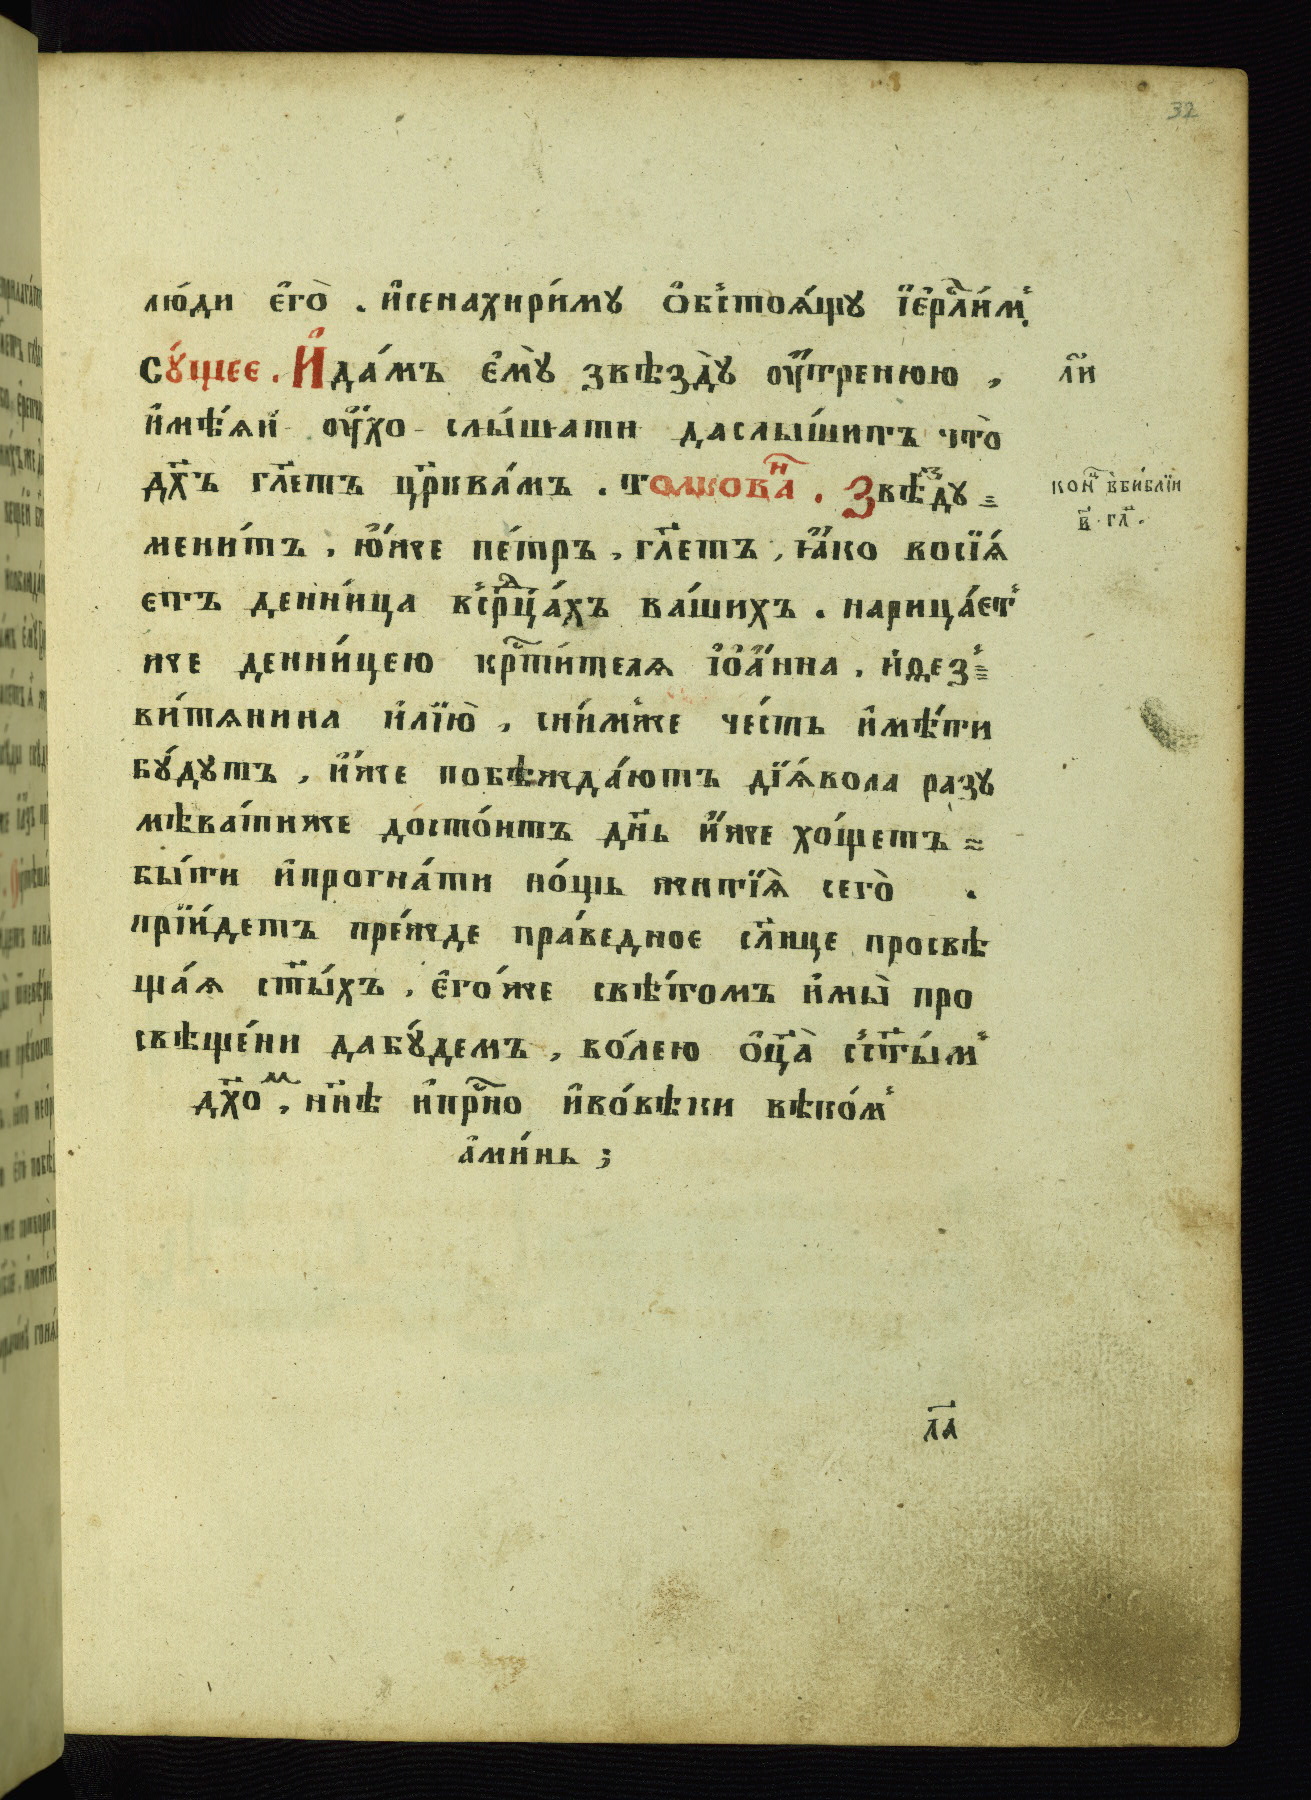 32
лю́ди є҆го̀ . и҆сенахири́мꙋ ѻ҆бстоѧ́щꙋ і҆єрⷭ҇ли́м
сꙋ́щее . И҆ да́мъ є҆мꙋ̀ ѕвѣздꙋ̀ оу҆́треннюю , ли҃
и҆мѣ́ѧй оу҆́хо слы́шати даслы́шитъ что̀
дх҃ъ гл҃етъ цр҃квамъ . толкова́нⷩ҇ . Звѣзⷥ҇дꙋ =
кон҃ вби́блїи
в҃ . гл҃ .
мени́тъ , ю҆́же пе́тръ , гл҃етъ , ꙗ҆́ко восїѧ́
етъ денни́ца всрⷣца́хъ ва́шихъ . нарица́єт
же денни́цею крⷭ҇ти́телѧ і҆ѡа҆́нна , и҆ѳез =
ви́тѧнина и҆лїю̀ , сни́миже че́сть и҆мѣ́ти
бꙋ́дꙋтъ , и҆́же побѣжда́ютъ дїѧ́вола разꙋ
мѣва́тиже досто́итъ дн҃ь и҆́же хо́щетъ =
бы́ти и҆прогна́ти но́щь житїѧ̀ сего̀ .
прїи́детъ пре́жде пра́ведное сл҃нце просвѣ
ща́ѧ ст҃ы́хъ . є҆го́же свѣ́томъ и҆мы̀ про
свѣще́ни дабꙋ́демъ , во́лею ѻ҆ц҃а̀ сост҃ы́м
дх҃омⷨ , нн҃ѣ и҆прⷭ҇но и҆во́вѣки вѣко́м
а҆ми́нь ;
ла҃